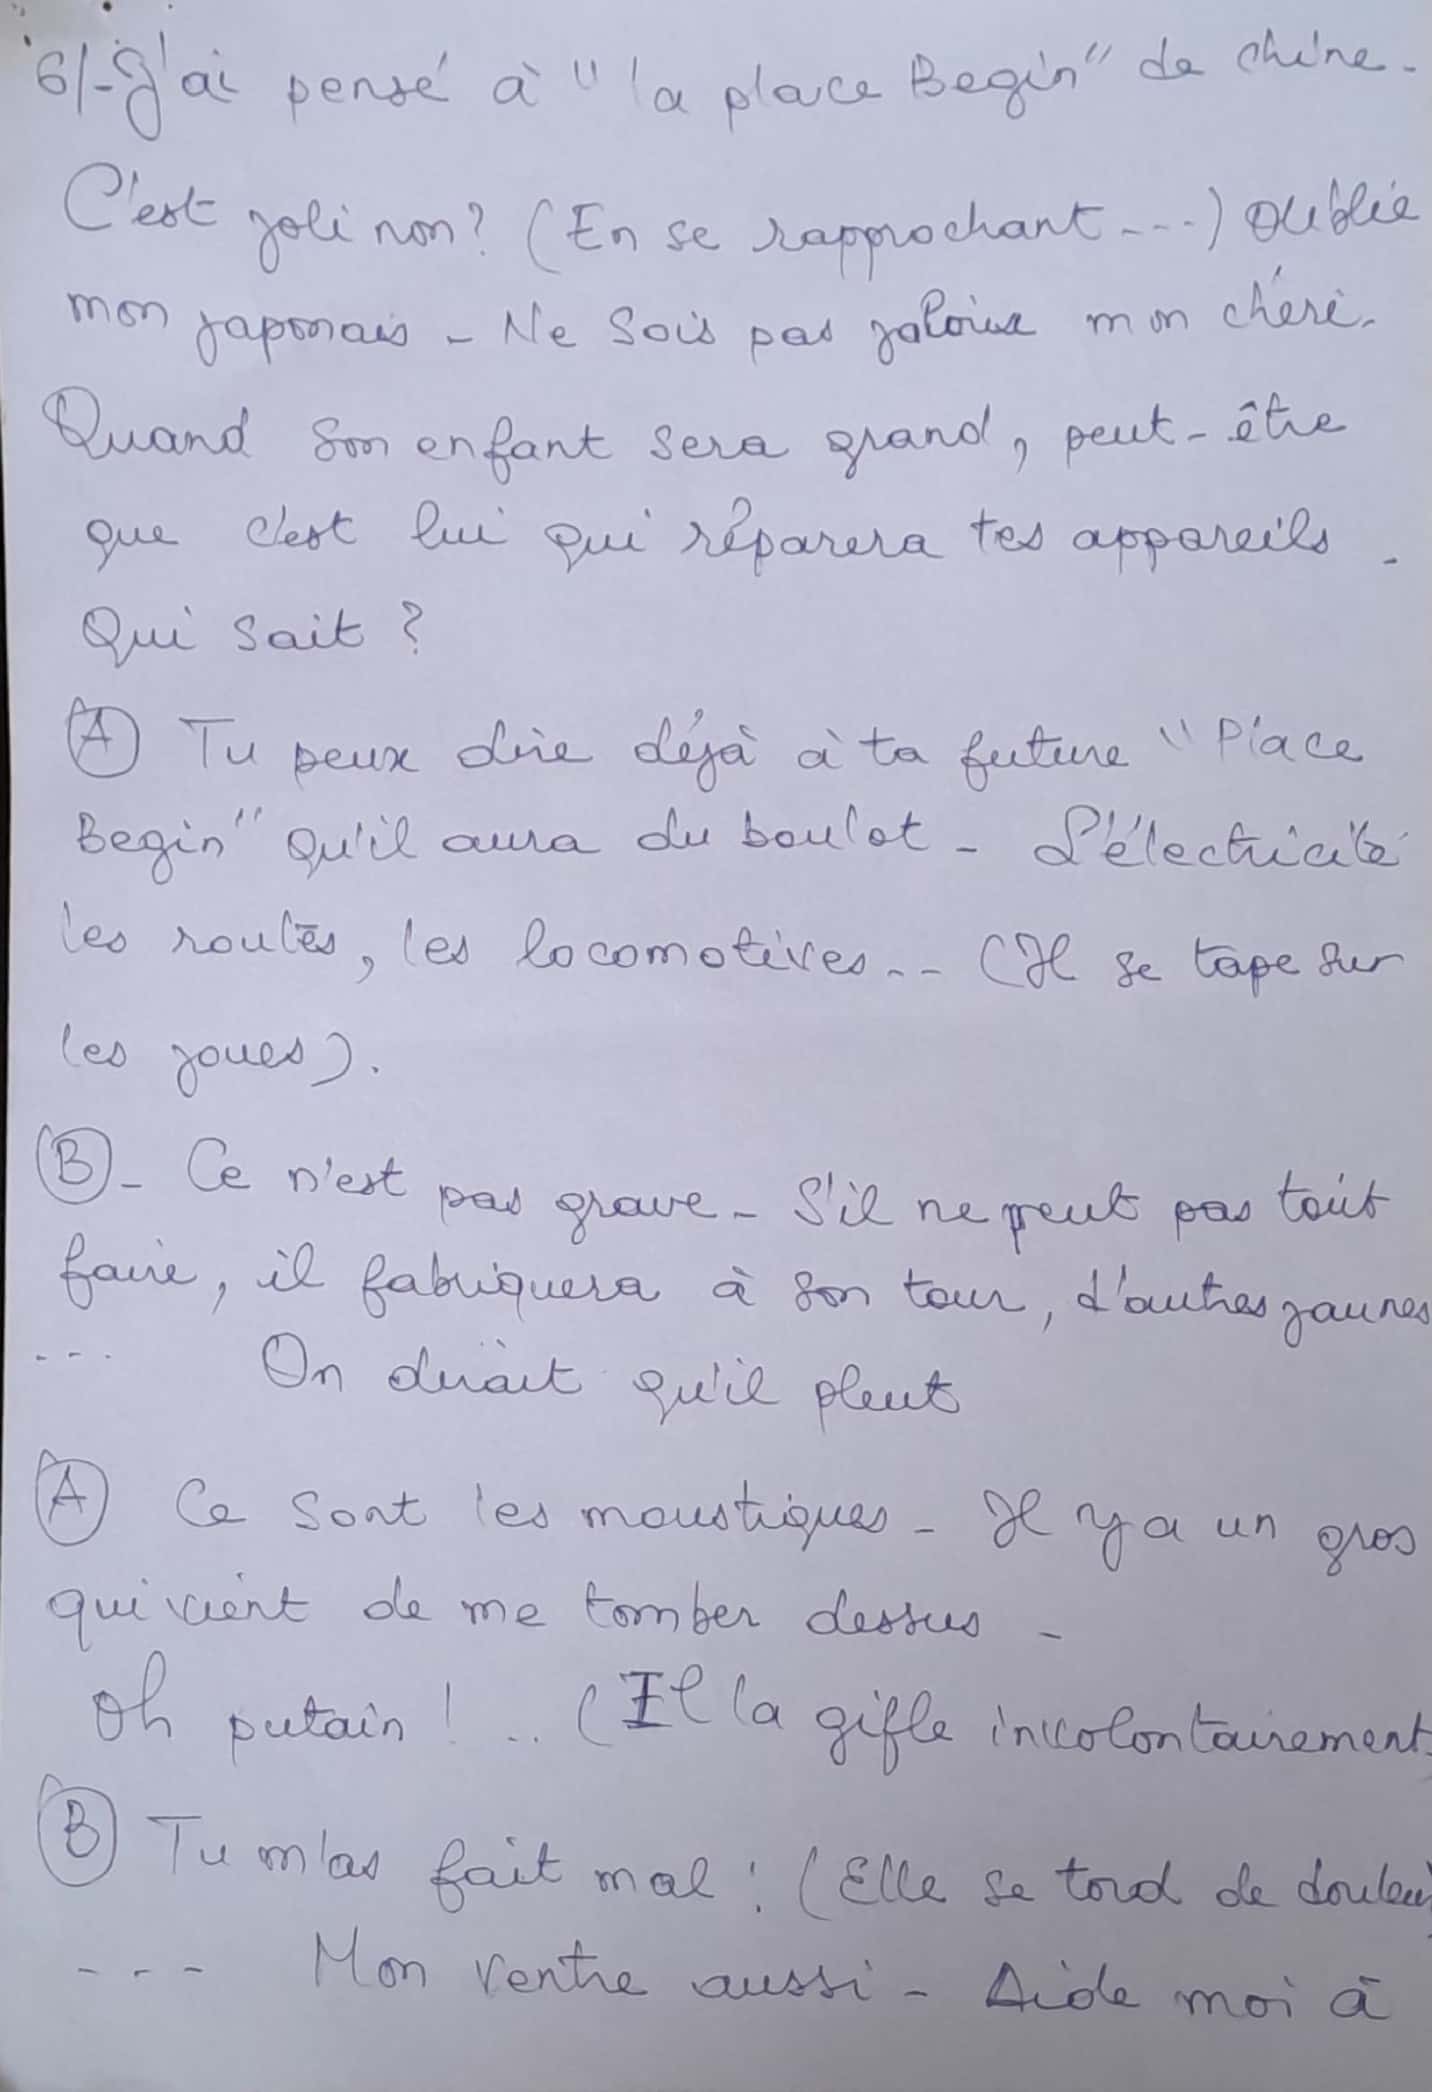 6/- J'ai pensé à "la place Begin" de chine.
C'est joli non? (En se rapprochant ---) oublie
mon japonais - Ne sois pas jaloux mon chéri.
Quand son enfant sera grand, peut-être
que c'est lui qui réparera tes appareils.
Qui sait ?
(A) Tu peux dire déjà à ta future "Place
Begin" qu'il aura du boulot - L'électricité
les routes, les locomotives.. (Il se tape sur
les joues).
(B) - Ce n'est pas grave - S'il ne peut pas tout
faire, il fabriquera à son tour, d'autres jaunes
--- On dirait qu'il pleut
(A) Ce sont les moustiques - Il y a un gros
qui vient de me tomber dessus -
Oh putain ! .. (Il la gifle involontairement.
(B) Tu m'as fait mal ! (Elle se tord de douleur)
--- Mon ventre aussi - Aide moi à